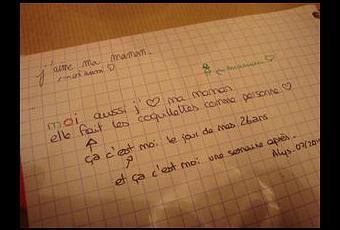 j'aime ma maman.
moi aussi ♡
← maman ♡
moi aussi j'♡ ma maman
elle fait les coquillettes comme personne ♡
ça c'est moi le jour de mes 26ans
et ça c'est moi une semaine après.
Alys. 07/20